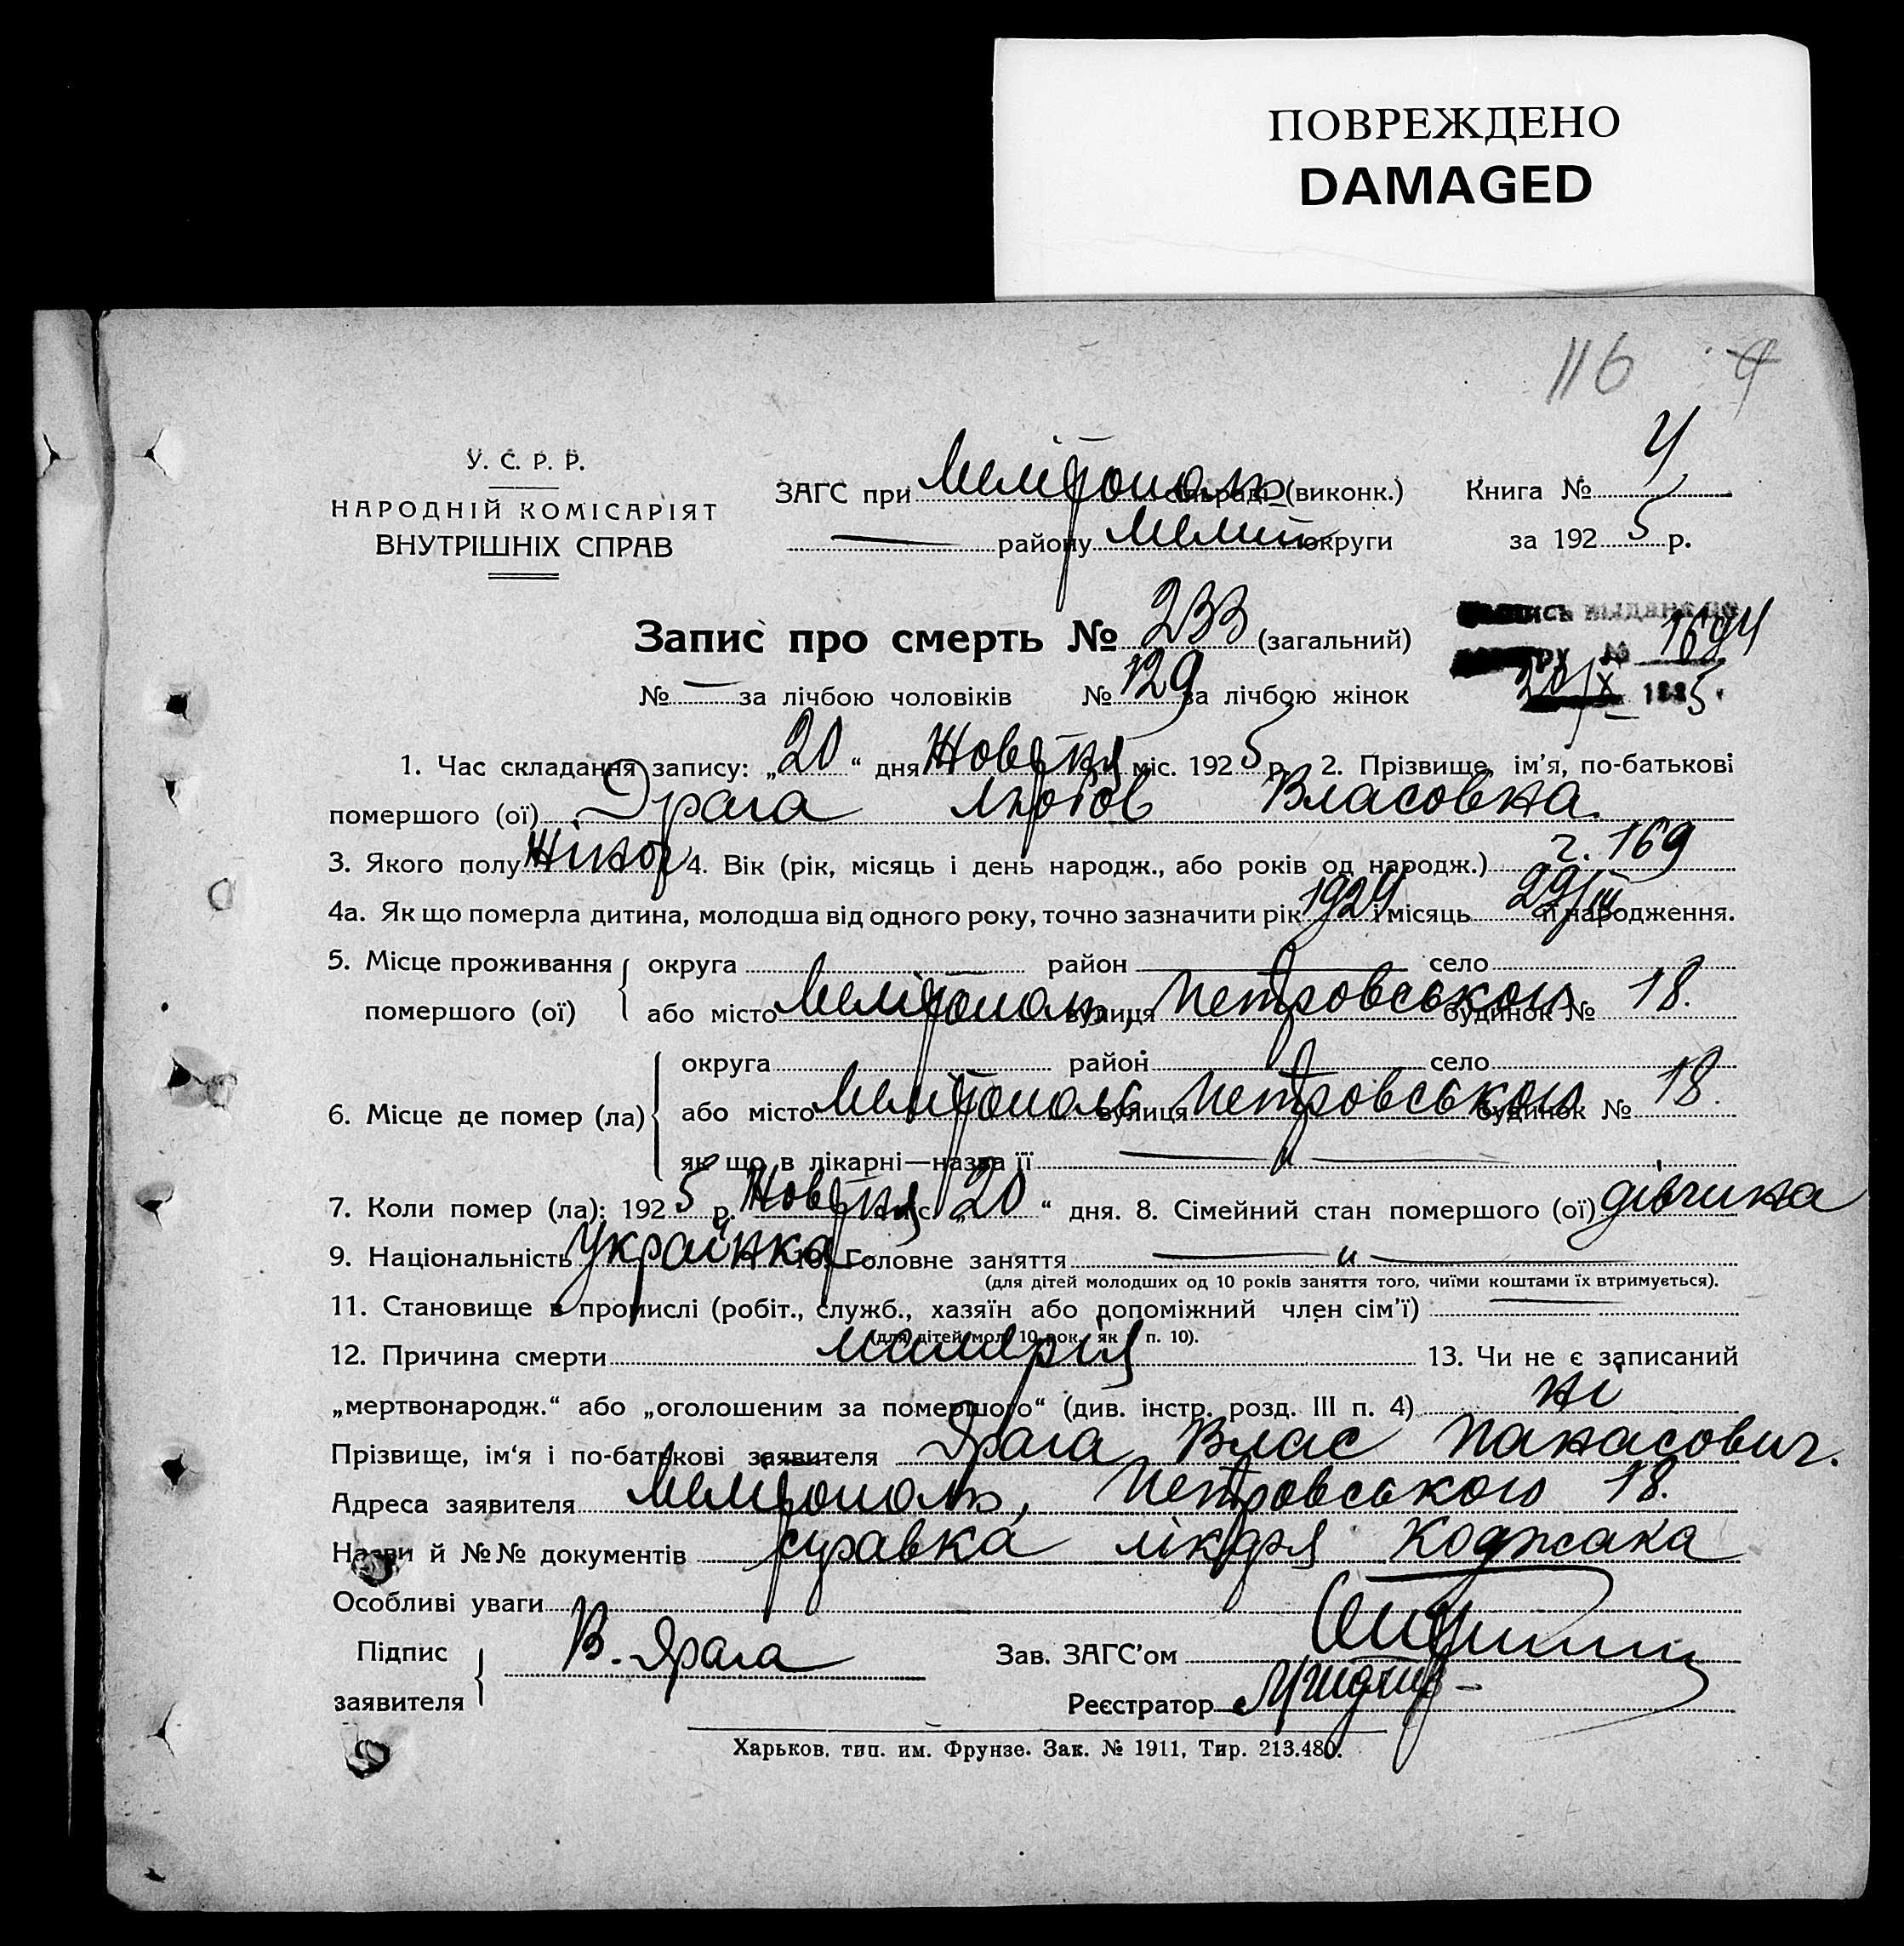 ПОВРЕЖДЕНО
DAMAGED
116 4
У. С. Р. Р.
НАРОДНІЙ КОМІСАРІЯТ
ВНУТРІШНІХ СПРАВ
ЗАГС при Мелітополь сільраді (виконк.) Книга № 4
— району Меліт округи за 1925 р.
Запис про смерть № 233 (загальний)
№ — за лічбою чоловіків № 129 за лічбою жінок
выдана по
№ 1694
20/X 1925
1. Час складання запису: „20“ дня Жовтня міс. 1925 р. 2. Прізвище, ім'я, по-батькові
помершого (ої) Драга Любов Власовна.
3. Якого полу Жіноч 4. Вік (рік, місяць і день народж., або років од народж.) г. 169
4а. Як що померла дитина, молодша від одного року, точно зазначити рік 1924 і місяць 29/III її народження.
5. Місце проживання помершого (ої) округа район — село
або місто Мелітополь, вулиця Петровського будинок № 18.
6. Місце де помер (ла) округа район село
або місто Мелітополь вулиця Петровського будинок № 18.
як що в лікарні—назва її — " —
7. Коли помер (ла): 1925 р. Жовтня міс. „20“ дня. 8. Сімейний стан помершого (ої) дівчина
9. Національність Українка 10. Головне заняття — " —
(для дітей молодших од 10 років заняття того, чиїми коштами їх втримується).
11. Становище в промислі (робіт., служб., хазяїн або допоміжний член сім'ї) —
(для дітей мол. 10 рок. як п. 10).
12. Причина смерти малярія 13. Чи не є записаний
„мертвонародж.“ або „оголошеним за помершого“ (див. інстр. розд. III п. 4) ні
Прізвище, ім'я і по-батькові заявителя Драга Влас Панасович.
Адреса заявителя Мелітополь, Петровського 18.
Назви й №№ документів справка лікаря Коджака
Особливі уваги
Підпис заявителя В. Драга Зав. ЗАГС'ом
Реєстратор
Харьков. тип. им. Фрунзе. Зак. № 1911, Тир. 213.480.